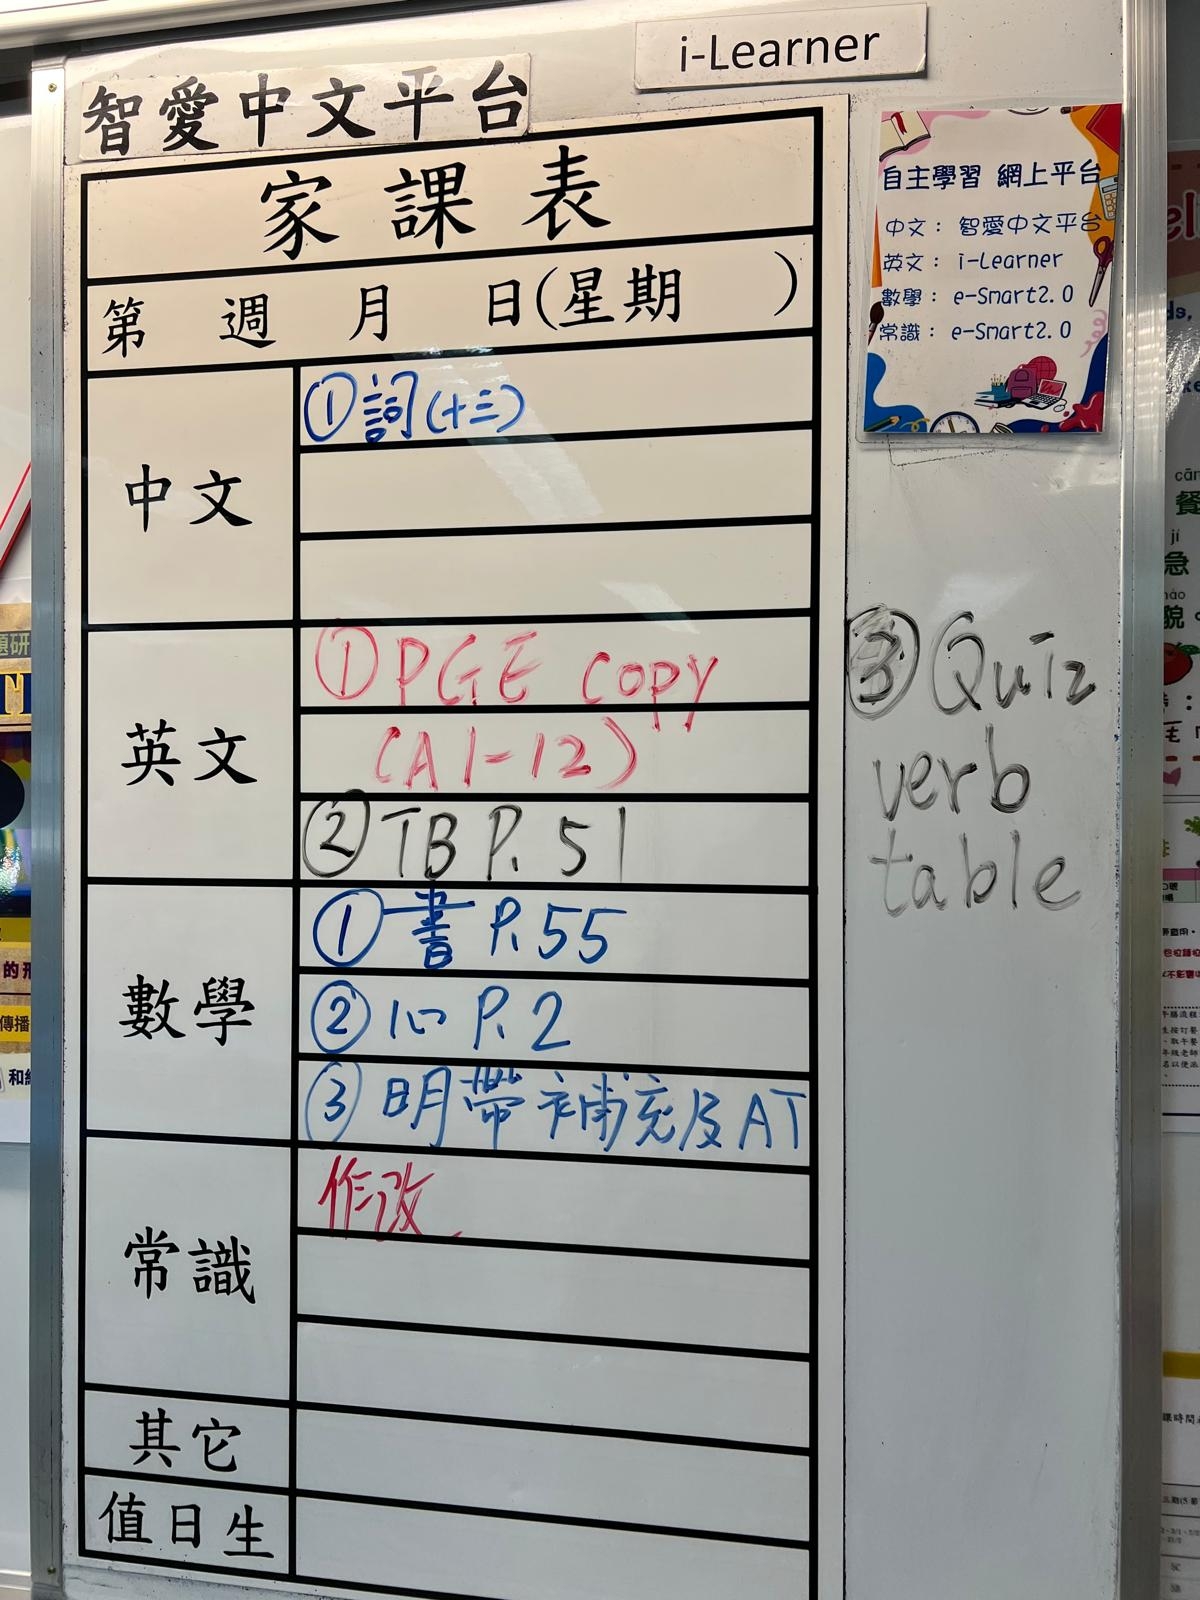 i-Learner
智愛中文平台
家課表
第 週 月 日(星期 )
中文
①詞(十三)
英文
①PGE copy
(A1-12)
②TB P.51
③Quiz
verb
table
數學
①書 P.55
②心 P.2
③明帶補充及AT
常識
作改
其它
值日生
自主學習 網上平台
中文：智愛中文平台
英文：i-Learner
數學：e-Smart2.0
常識：e-Smart2.0
題研
的形
傳播
和
cān
餐
jí
急
貌